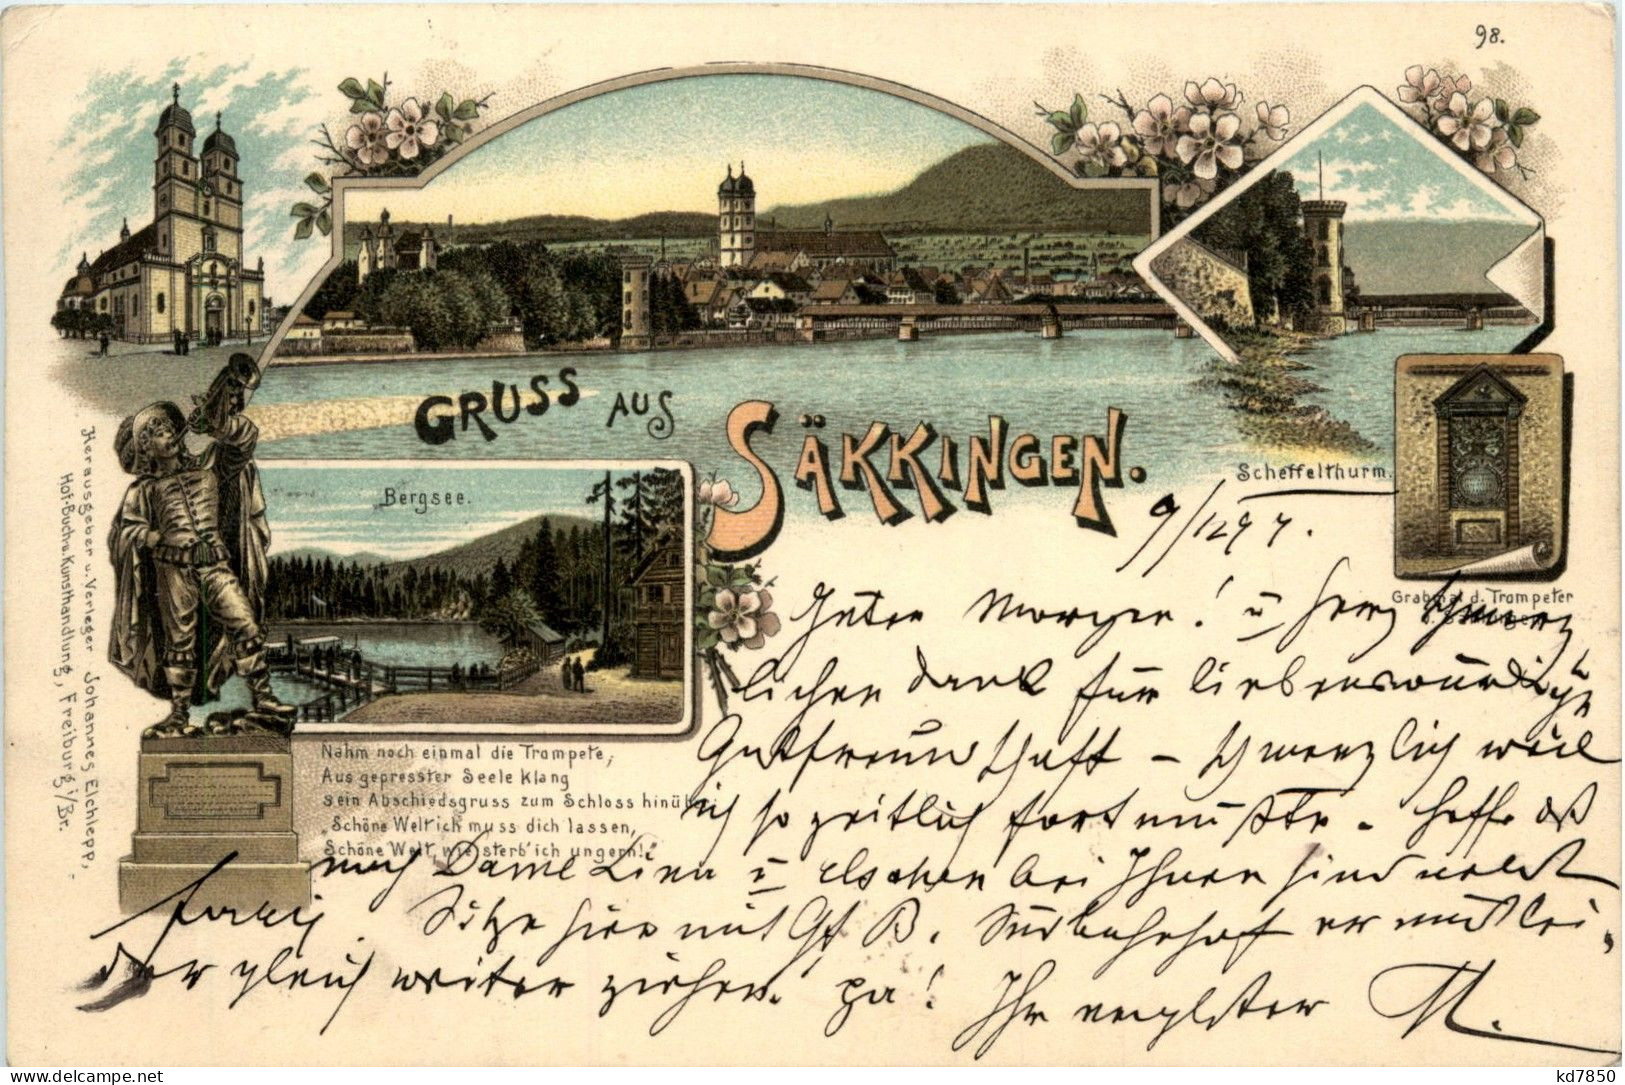 98.
GRUSS AUS SÄKKINGEN.
Scheffelthurm.
Bergsee.
Grabmal d. Trompeter
Herausgeber u. Verleger Johannes Elchlepp,
Hof-Buch u. Kunsthandlung, Freiburg i/Br.
Nahm noch einmal die Trompete,
Aus gepresster Seele klang
sein Abschiedsgruss zum Schloss hinüb
"Schöne Welt ich muss dich lassen,
Schöne Welt, wie sterb' ich ungern!"
9/12 97.
Guten Morgen! u herz schmerz
lichen Dank für liebenswürdige
Gutfreundschaft – schmerzlich weil
ich so zeitlich fort mußte. Hoffe daß
noch Dame Linn u Elschen bei Ihnen sind
Sitze hier mit Gf B. Südbahnhof er muß lei
der gleich weiter ziehen! pa! Ihr M.
delcampe.net
kd7850